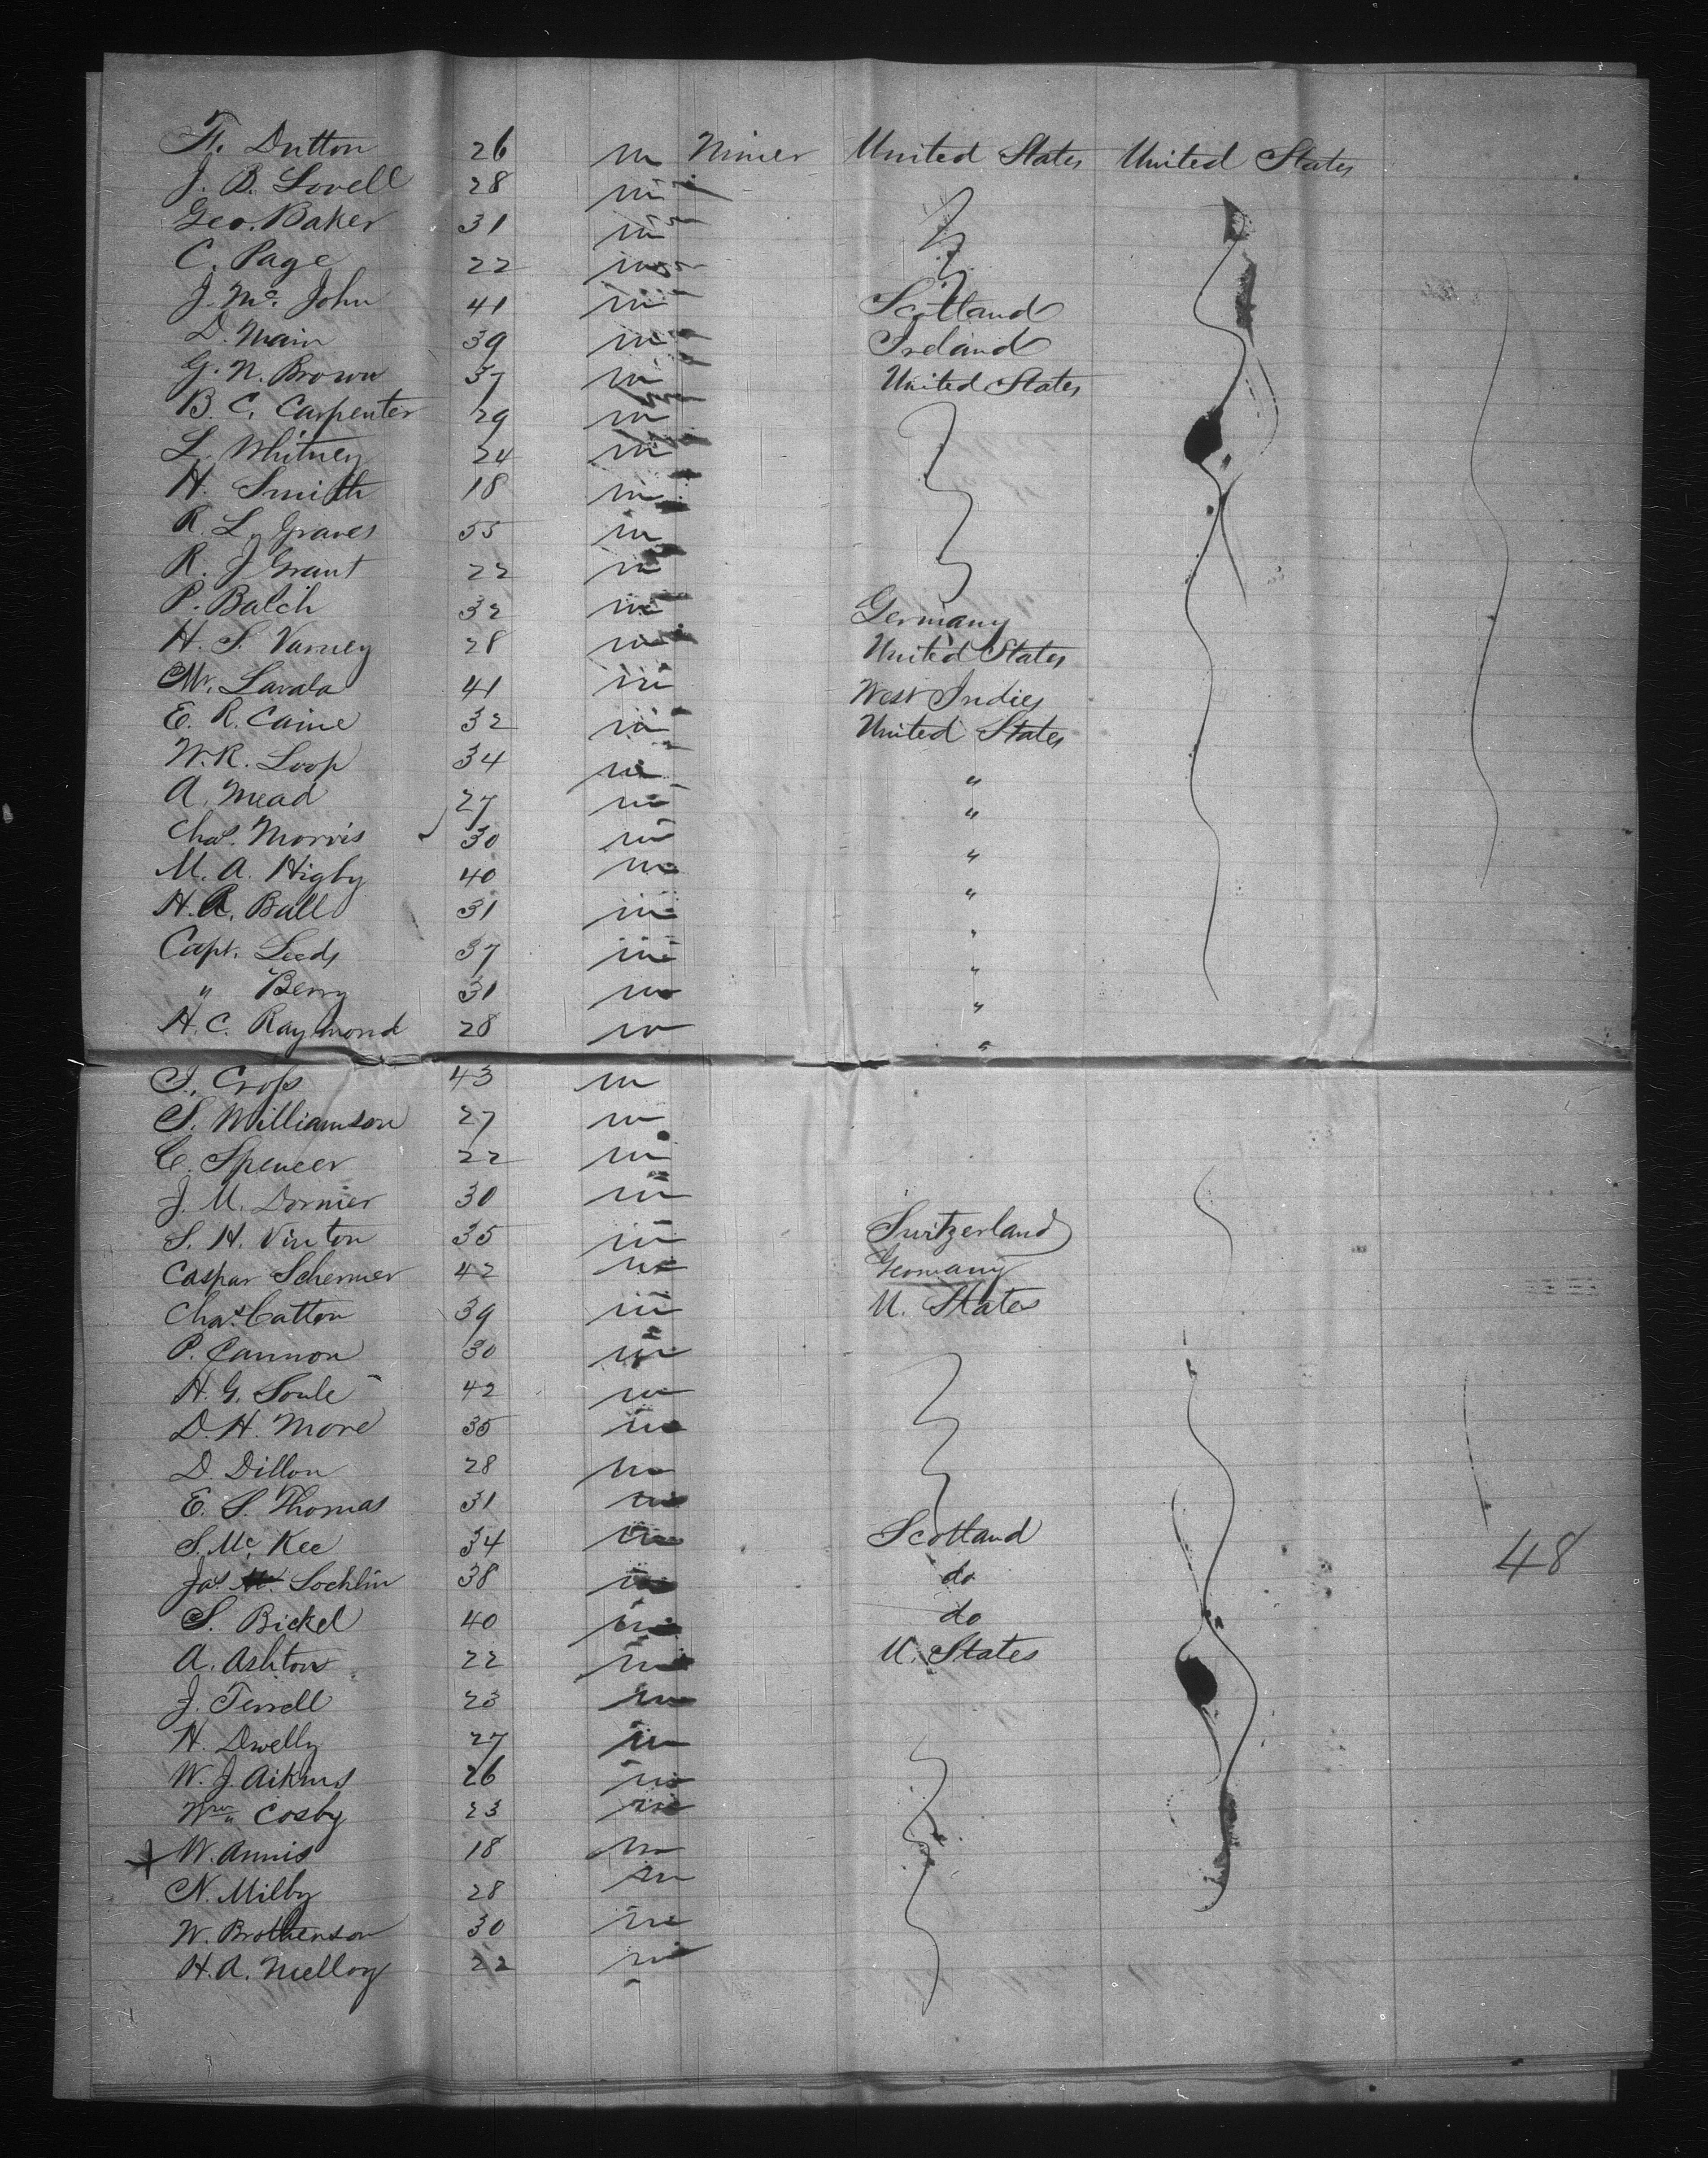 F. Dutton 26 m Miner United States United States
J. B. Lovell 28 m "
Geo. Baker 31 m "
C. Page 22 m "
J. Mc. John 41 m " Scotland
D. Main 39 m " Ireland
G. N. Brown 37 m " United States
B. C. Carpenter 29 m "
L. Whitney 24 m "
H. Smith 18 m "
R. L. Graves 35 m
R. J Grant 22 m
P. Balch 32 m Germany
H. S. Varney 28 m United States
Mr. Lavala 41 m West Indies
E. R. Caine 32 m United States
W. R. Loop 34 m "
A. Mead 27 m "
Chas. Morris 30 m "
M. A. Higby 40 m "
H. A. Ball 31 m "
Capt. Leeds 37 m "
" Berry 31 m "
H. C. Raymond 28 m "
Cross 43 m
S. Williamson 27 m
C. Spencer 22 m
J. M. Dormer 30 m
S. H. Vinton 35 m Switzerland
Caspar Schermer 42 m Germany
Chas. Catton 39 m U. States
P. Cannon 30 m
H. G. Soule 42 m
D. H. More 35 m
D. Dillon 28 m
E. S. Thomas 31 m
S. Mc Kee 34 m Scotland
Jas. Lochlin 38 m do 48
S. Bickel 40 m do
A. Ashton 22 m U. States
J. Terrell 23 m
H. Dwelly 27 m
W. J. Aikins 26 m
Wm. Cosby 23 m
W. Annis 18 m
N. Milby 28 m
W. Brotherson 30 m
H. A. Melloy 22 m